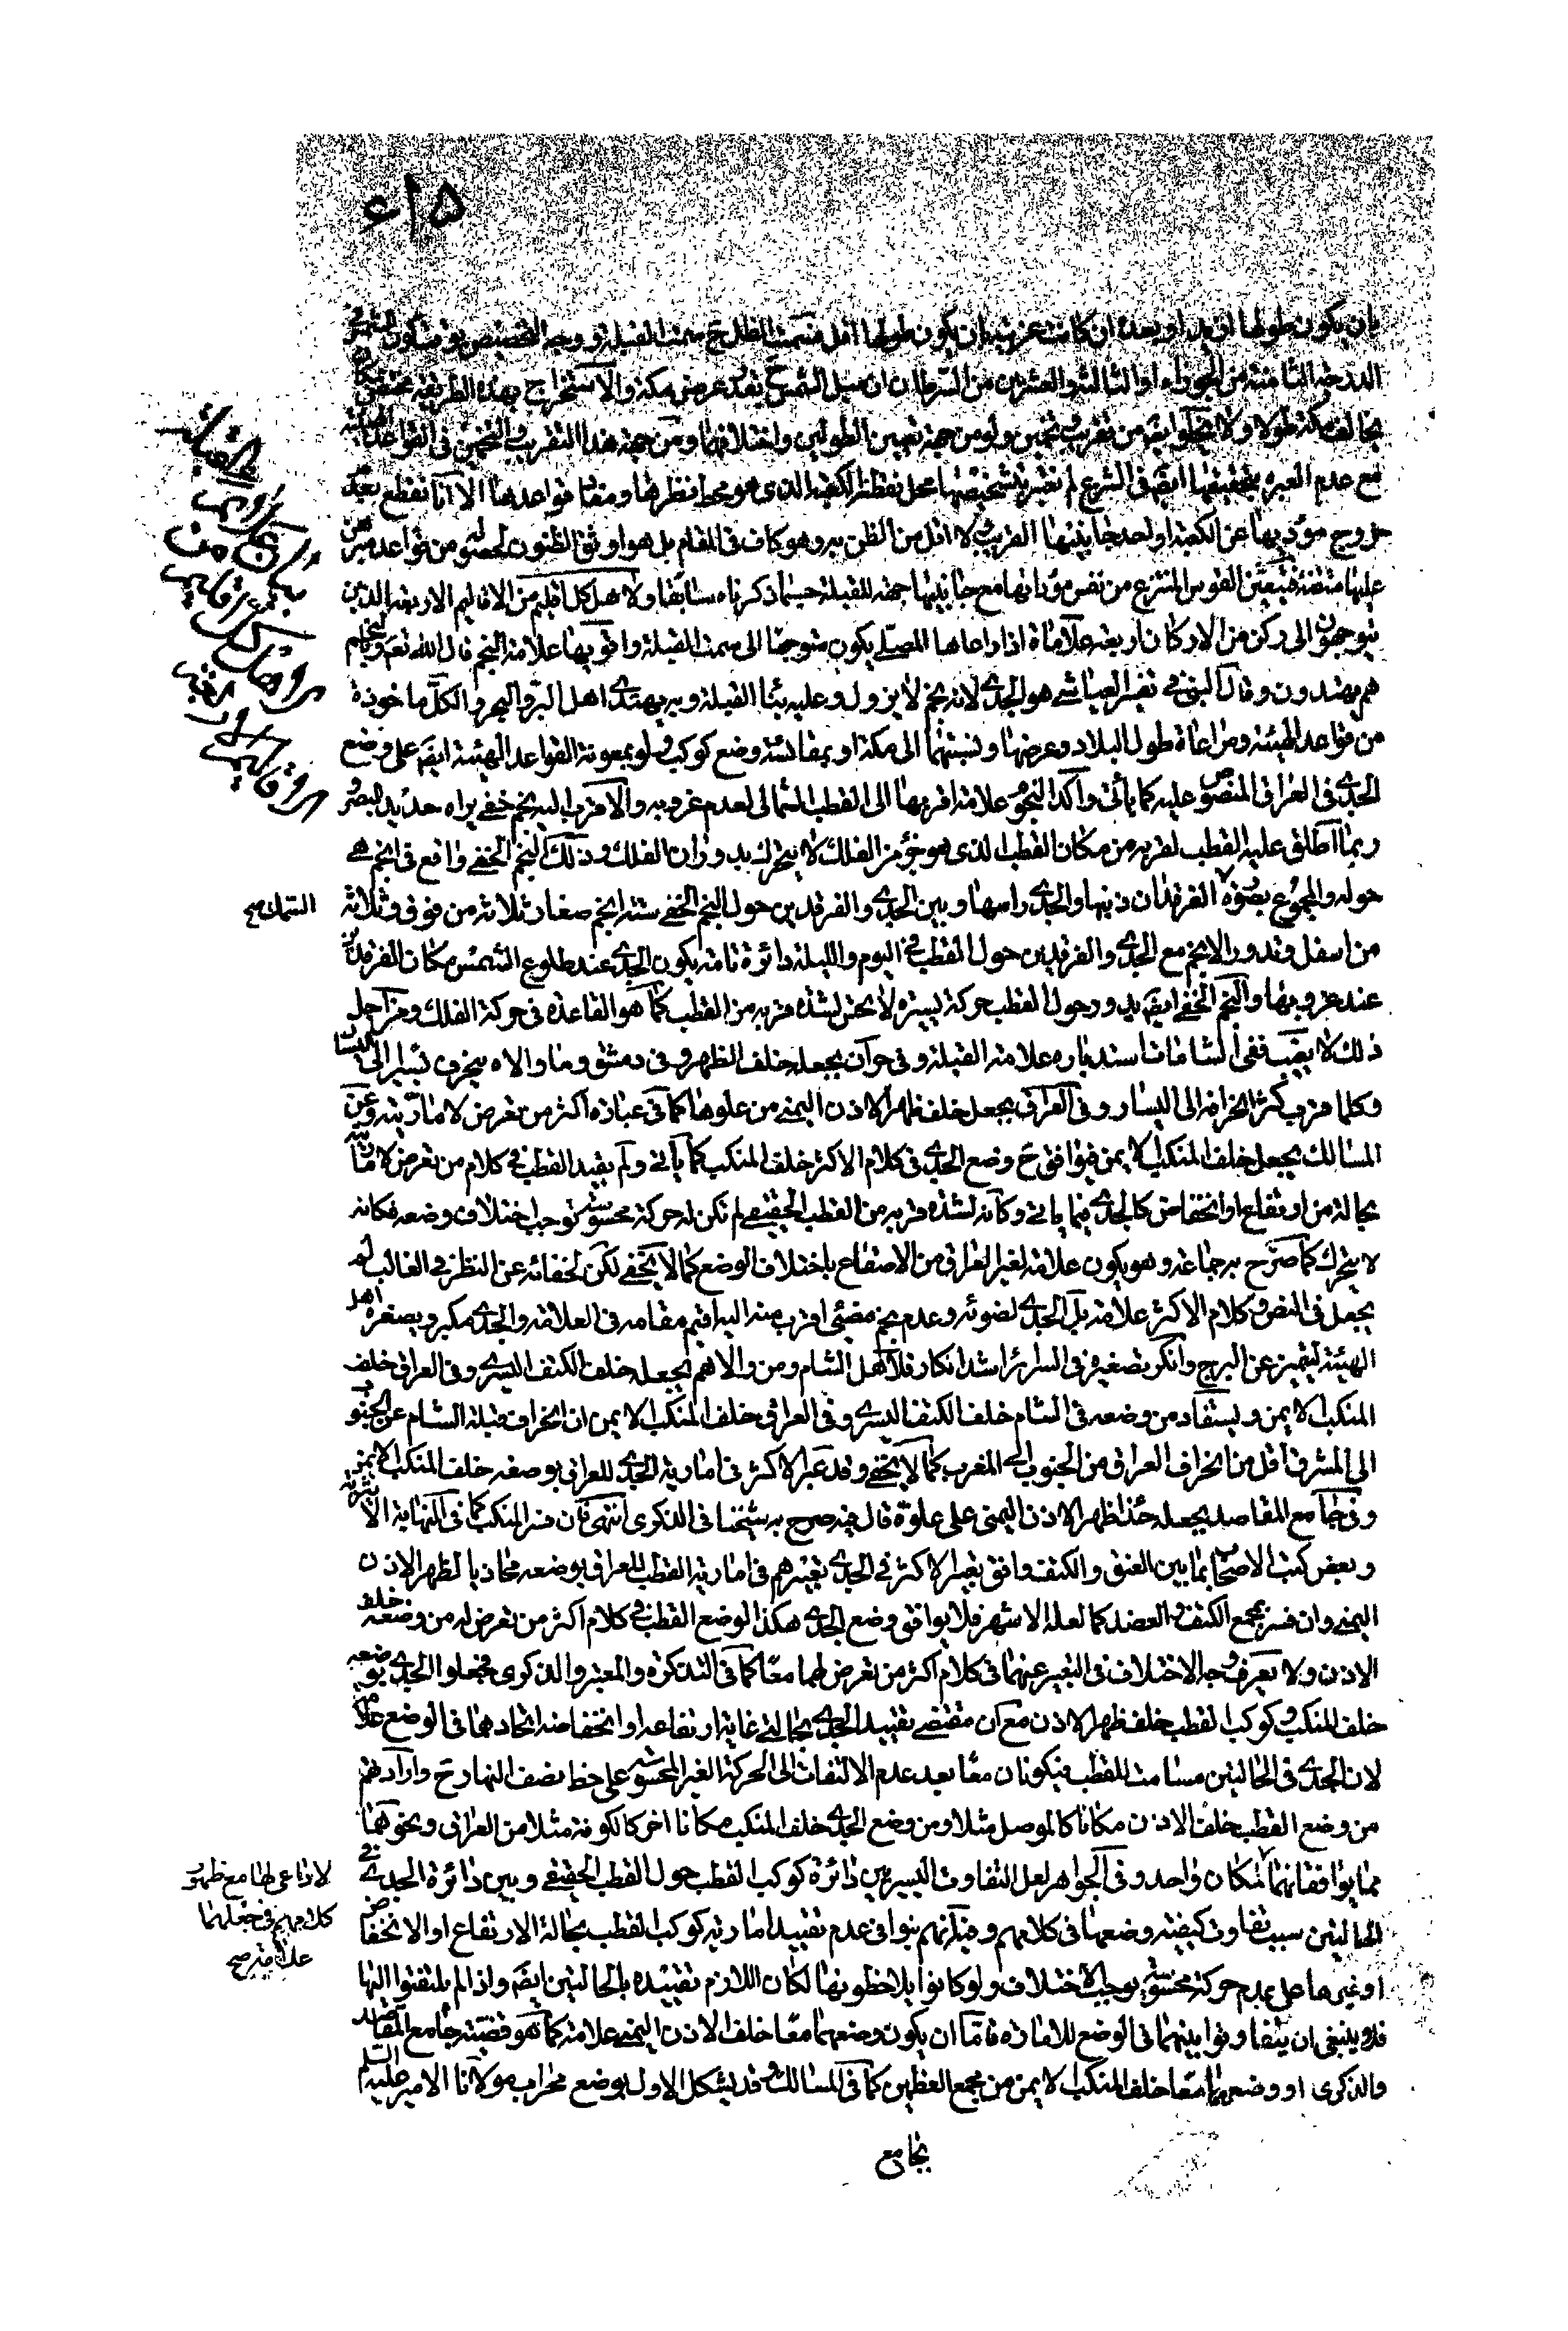 بان يكون طولها ازيد او بعده ان كانت غربية بان يكون طولها اقل فسمت الظل ح سمت القبلة ووجه التخصيص بوقت كون الشمس في
الدرجة الثامنة من الجوزاء او الثالثة والعشرين من السرطان ان ميل الشمس ح بقدر عرض مكة والاستخراج بهذه الطريقة مختص
بخالف مكة طولا ولا يخلو ايضا من تقريب وتخمين ولو من جهة تعيين الطولين واختلافهما ومن جهة هذا التقريب والتخمين في القواعد
مع عدم العبرة بتحقيقها ايضا في الشرع لم نعتبر بتشخيصها محل نقطة الكعبة الذي هو محط نظرها ومفاد قواعدها الا انا نقطع بعدم
خروج مؤديها عن الكعبة او احد جانبيها القريب لا اقل من الظن به وهو كاف في المقام بل هو اوثق الظنون لحصوله من قواعد مبرهن
عليها متقنة فتعين القوس المنتزع من نفس مؤداها مع جانبيها جهة للقبلة حيثما ذكرناه سابقا ولاهل كل اقليم من الاقاليم الاربعة الذين
يتوجهون الى ركن من الاركان اربعة علاماة اذا راعاها المصلي يكون متوجها الى سمت القبلة واقويها علامة النجم قال الله تعم وبالنجم
هم يهتدون وقال النبي ص في تفسير العياشي هو الجدي لانه نجم لا يزول وعليه بناء القبلة وبه يهتدي اهل البر والبحر والكل ماخوذة
من قواعد الهيئة ومراعاة طول البلاد وعرضها ونسبتهما الى مكة او بمقائسة وضع كوكب ولو بمعونة القواعد الهيئة ايضا على وضع
الجدي في العراق المنصوص عليه كما ياتي واكد النجوم علامة اقربها الى القطب الشمالي لعدم غروبه والاقرب اليه نجم خفي يراه حديد البصر و
ربما اطلق عليه القطب لقربه من مكان القطب الذي هو جزء من الفلك لا يتحرك بدوران الفلك وذلك النجم الخفي واقع في انجم هي
حوله والمجموع بصورة السمكة صح الفرقدان ذنبها والجدي راسها وبين الجدي والفرقدين حول النجم الخفي ستة انجم صغار ثلاثة من فوق وثلاثة
من اسفل وتدور الانجم مع الجدي والفرقدين حول القطب في اليوم والليلة دائرة تامة يكون الجدي عند طلوع الشمس مكان الفرقدين
عند غروبها والنجم الخفي ايضا يدور حول القطب حركة يسيره لا يحس لشدة قربه من القطب كما هو القاعدة في حركة الفلك ومن اجل
ذلك لا يغيب ففي الشامات استدباره علامة القبلة وفي حران يجعله خلف الظهر وفي دمشق وما والاه ينحرف يسيرا الى اليسار
وكلما قرب كثر انحرافه الى اليسار وفي العراق يجعل خلف ظهر الاذن اليمنى من علوها كما في عبارة اكثر من تعرض لاماريته وعن
المسالك يجعل خلف المنكب الايمن فيوافق ح وضع الجدي في كلام الاكثر خلف المنكب كما ياتي ولم يقيد القطب في كلام من تعرض لاماريته
بحالة من ارتفاع او انخفاض كالجدي فيما ياتي وكانه لشدة قربه من القطب الحقيقي لم تكن له حركة محسوسة توجب اختلاف وضعه فكانه
لا يتحرك كما صرح به جماعة وهو يكون علامة لغير العراق من الاصقاع باختلاف الوضع كما لا يخفى لكن لخفائه عن النظر في الغالب لم
يجعل في النص وكلام الاكثر علامة بل الجدي لضوئه وعدم نجم مضيئ اقرب منه اليه اقيم مقامه في العلامة والجدي مكبر ويصغره اهل
الهيئة ليتميز عن البرج وانكر تصغيره في السرائر اشد انكار فلاهل الشام ومن والاهم يجعل خلف الكتف اليسرى وفي العراق خلف
المنكب الايمن ويستفاد من وضعه في الشام خلف الكتف اليسرى وفي العراق خلف المنكب الايمن ان انحراف قبلة الشام عن الجنوب
الى المشرق اقل من انحراف العراق من الجنوب الى المغرب كما لا يخفى وقد عبر الاكثر في امارية الجدي للعراق بوضعه خلف المنكب الايمن
وفي جامع المقاصد يجعله حذاء ظهر الاذن اليمنى على علوه قال فيه صرح به شيخنا في الذكرى انتهى فان فسر المنكب كما في النهاية الاثيرية
وبعض كتب الاصحاب بما بين العنق والكتف وافق تعبير الاكثر في الجدي تعبيرهم في امارية القطب للعراق بوضعه محاذيا لظهر الاذن
اليمنى وان فسر بمجمع الكتف والعضد كما لعله الاشهر فلا يوافق وضع الجدي هكذا لوضع القطب في كلام اكثر من تعرض له من وضعه خلف
الاذن ولا يعرف وجه الاختلاف في التعبير عنهما في كلام اكثر من تعرض لهما معا كما في التذكرة والمعتبر والذكرى فجعلوا الجدي بوضعه
خلف المنكب وكوكب القطب خلف ظهر الاذن مع ان مقتضى تقييد الجدي بحالتي غاية ارتفاعه او انخفاضه اتحادهما في الوضع علامة
لان الجدي في الحالتين مسامت للقطب فيكونان معا بعد عدم الالتفات الى الحركة الغير المحسوسة على خط نصف النهار ح وارادتهم
من وضع القطب خلف الاذن مكانا كالموصل مثلا ومن وضع الجدي خلف المنكب مكانا اخر كالكوفة مثلا من العراق ونحوهما
مما يوافقانهما لا داعي لها مع ظهور كلامهم في جعلهما علامة صح لمكان واحد وفي الجواهر لعل التفاوت اليسير بين دائرة كوكب القطب حول القطب الحقيقي وبين دائرة الجدي في
الحالتين سبب تفاوت كيفية وضعهما في كلامهم وفيه انهم بنوا في عدم تقييد امارية كوكب القطب بحالة الارتفاع او الانخفاض
او غيرها على عدم حركة محسوسة يوجب الاختلاف ولو كانوا يلاحظونها لكان اللازم تقييده بالحالتين ايضا واذا لم يلتفتوا اليها
فلا ينبغي ان يتفاوتوا بينهما في الوضع للامارة فاما ان يكون وضعهما معا خلف الاذن اليمنى علامة كما هو قضية جامع المقاصد
والذكرى او وضعهما معا خلف المنكب الايمن من مجمع العظمين كما في المسالك وقد يشكل الاول بوضع محراب مولانا الامير عليه السلام
بجامع